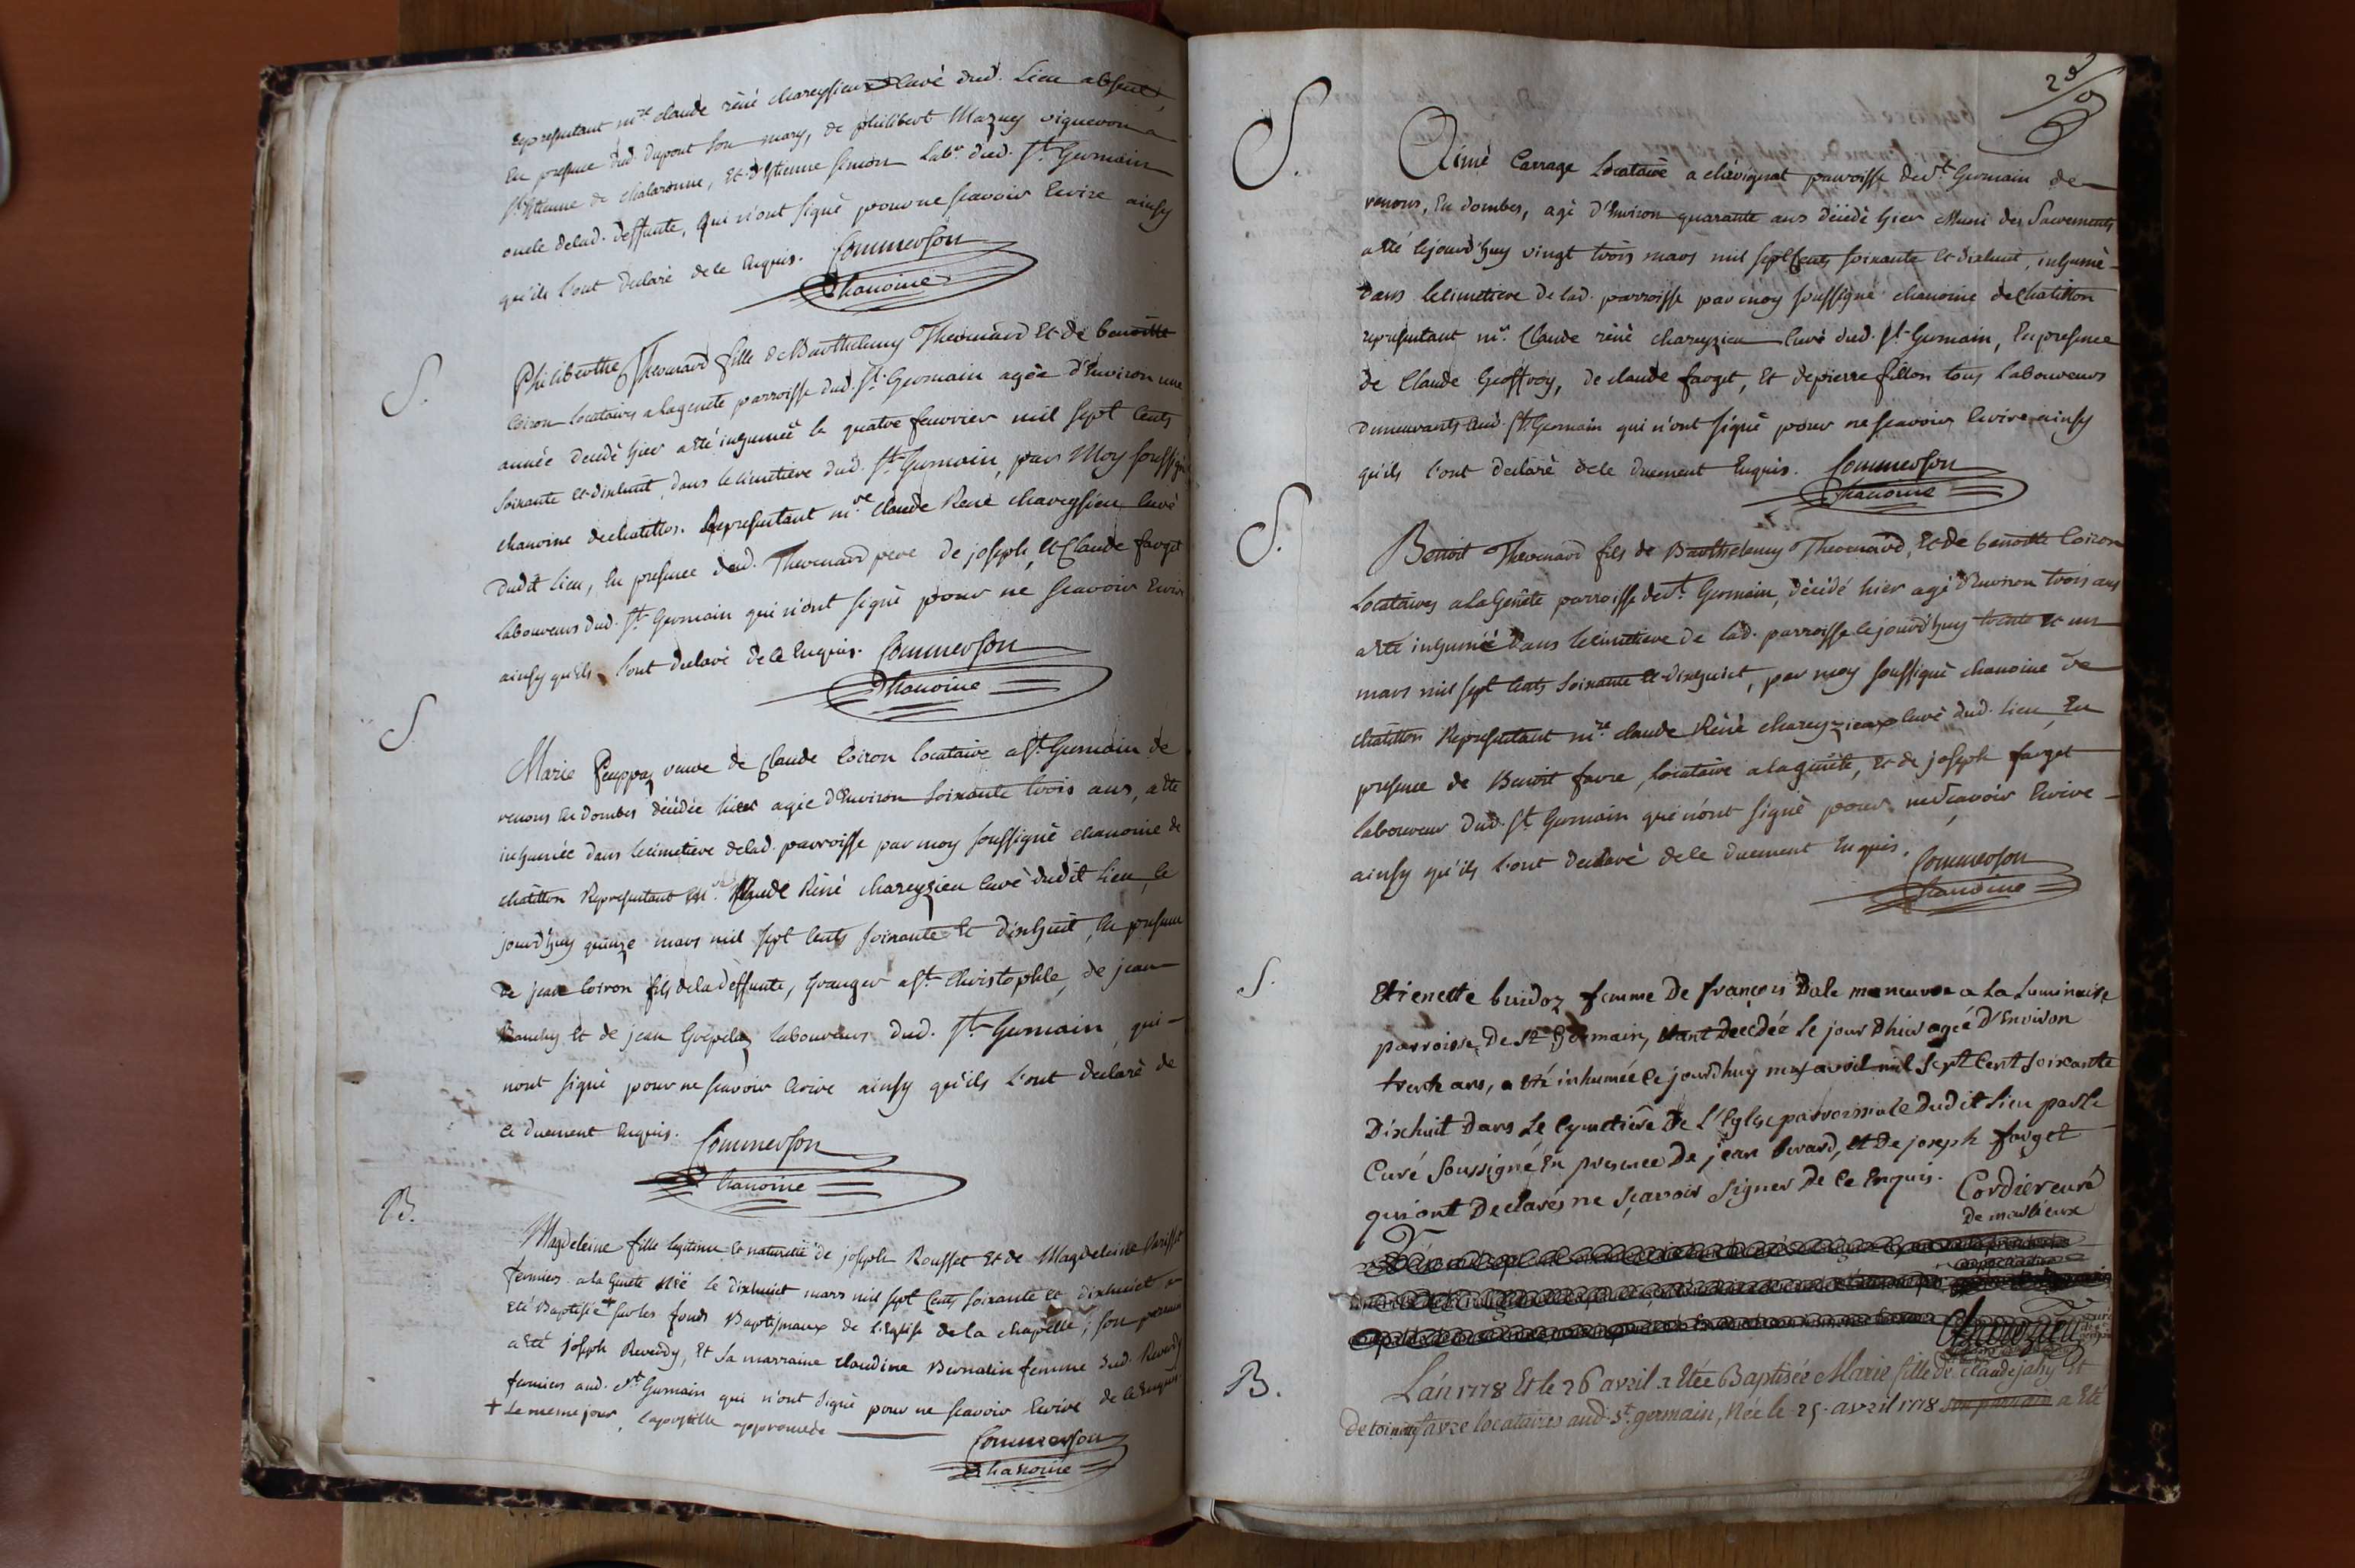 representant mre claude réné chareysieu Curé dud. Lieu absent,
En presence dud. dupont Son mary, de philibert Mazuy vigneron a
St Etienne de chalaronne, et d'Etienne Simon Labr. dud. St Germain
oncle delad. deffunte, qui n'ont signé pour ne scavoir Ecrire ainsy
qu'ils L'ont Declaré de ce Enquis. Commerson
Chanoine
S.
Philiberthe Thevenard fille de Barthelemy Thevenard Et de benoitte
Coiron Locataires a lagenete parroisse dud. St Germain agée d'Environ une
année Decedé hier a Eté inhumeé le quatre fevrier mil sept Cents
Soixante et dixhuit, dans le cimetiere dud. St Germain, par Moy soussigné
chanoine de chatillon. Representant mre. Claude René chareysieu Curé
Dudit Lieu, En presence dud. Thevenard pere de joseph, et Claude farget
Laboureurs dud. St Germain qui n'ont signé pour ne scavoir Ecrire
ainsy qu'ils L'ont declaré de ce Enquis. Commerson
Chanoine
S
Marie veuve de Claude Coiron locataire a St. Germain de
renons En dombes décédée hier agée d'Environ Soixante trois ans, a Eté
inhumée dans le cimetiere delad. parroisse par moy soussigné chanoine de
chatillon Representant mre. Claude Réné chareyzieu Curé dudit Lieu, le
jourd'huy quinze mars mil sept Cents soixante et dixhuit, En presence
de jean Coiron fils dela deffunte, Granger a St. Christophle, de jean
et de jean laboureurs dud. St Germain, qui -
nont signé pour ne scavoir Ecrire ainsy qu'ils L'ont declaré de
ce duement Enquis. Commerson
Chanoine
B.
Magdeleine fille legitime et naturelle de joseph Rousset Et de Magdeleine
fermiers a la Genete Née le dixhuict mars mil sept Cents soixante et dixhuict a
Eté Baptisée + sur les fonds Baptismaux de L'Eglise de la chapelle; son parrain
a Eté joseph Reverdy, Et Sa marraine Claudine Bernalin femme dud. Reverdy
fermiers aud. St Germain qui n'ont signé pour ne scavoir Ecrire de ce Enquis.
+ Le meme jour, L'apostille approuvée
Commerson
Chanoine
S.
Aimé Carrage Locataire a chévignat parroisse de St. Germain de
renons, En dombes, agé d'Environ quarante ans décédé hier Muni des Sacrements
a Eté cejourd'huy vingt trois mars mil sept Cents soixante et dixhuit, inhumé
dans le cimetiere de lad. parroisse par moy soussigné chanoine de Chatillon
representant mr. Claude réné chareyzieu Curé dud. St. Germain, En presence
de Claude Geoffroy, de claude farget, Et de pierre fillon tous Laboureurs
Demeurants aud. St. Germain qui n'ont signé pour ne scavoir Ecrire ainsy
qu'ils L'ont declaré de ce duement Enquis. Commerson
Chanoine
S.
Benoit Thevenard fils de Barthelemy Thevenard, Et de benoitte Coiron
Locataires a La Genete parroisse de St. Germain, décédé hier agé d'Environ trois ans
a Eté inhumé Dans le cimetiere de lad. parroisse cejourd'huy trente et un
mars mil sept Cents Soixante et dixhuict, par moy soussigné chanoine de
chatillon Representant mre claude Réné chareyzieux Curé dud. Lieu, En
presence de Benoit favre, locataire a la genete, Et de joseph farget
laboureur dud. St. Germain qui n'ont signé pour ne scavoir Ecrire -
ainsy qu'ils L'ont declaré de ce duement Enquis. Commerson
Chanoine
S.
Etienette buidoz femme De françois Dale maneuvre a La Luminaire
parroisse De St Germain, Etant Decédée Le jour Dhier ageé D'Environ
trente ans, a Eté inhumée Ce jourdhuy avril mil Sept Cent Soixante
Dixhuit Dans Le Cymetiere De L'Eglise parroissiale Dudit Lieu par Le
Curé Soussigné En presence De jean berard, et De joseph farget
qui ont Declarés ne Sçavoir Signer De Ce Enquis. Cordier curé
De marlieux
B.
L'an 1778 Et le 26 avril a Etée Baptisée Marie fille de Claude jahy Et
de toinette favre locataires aud. St. germain, Née le 25 avril 1778 son parrain a Eté